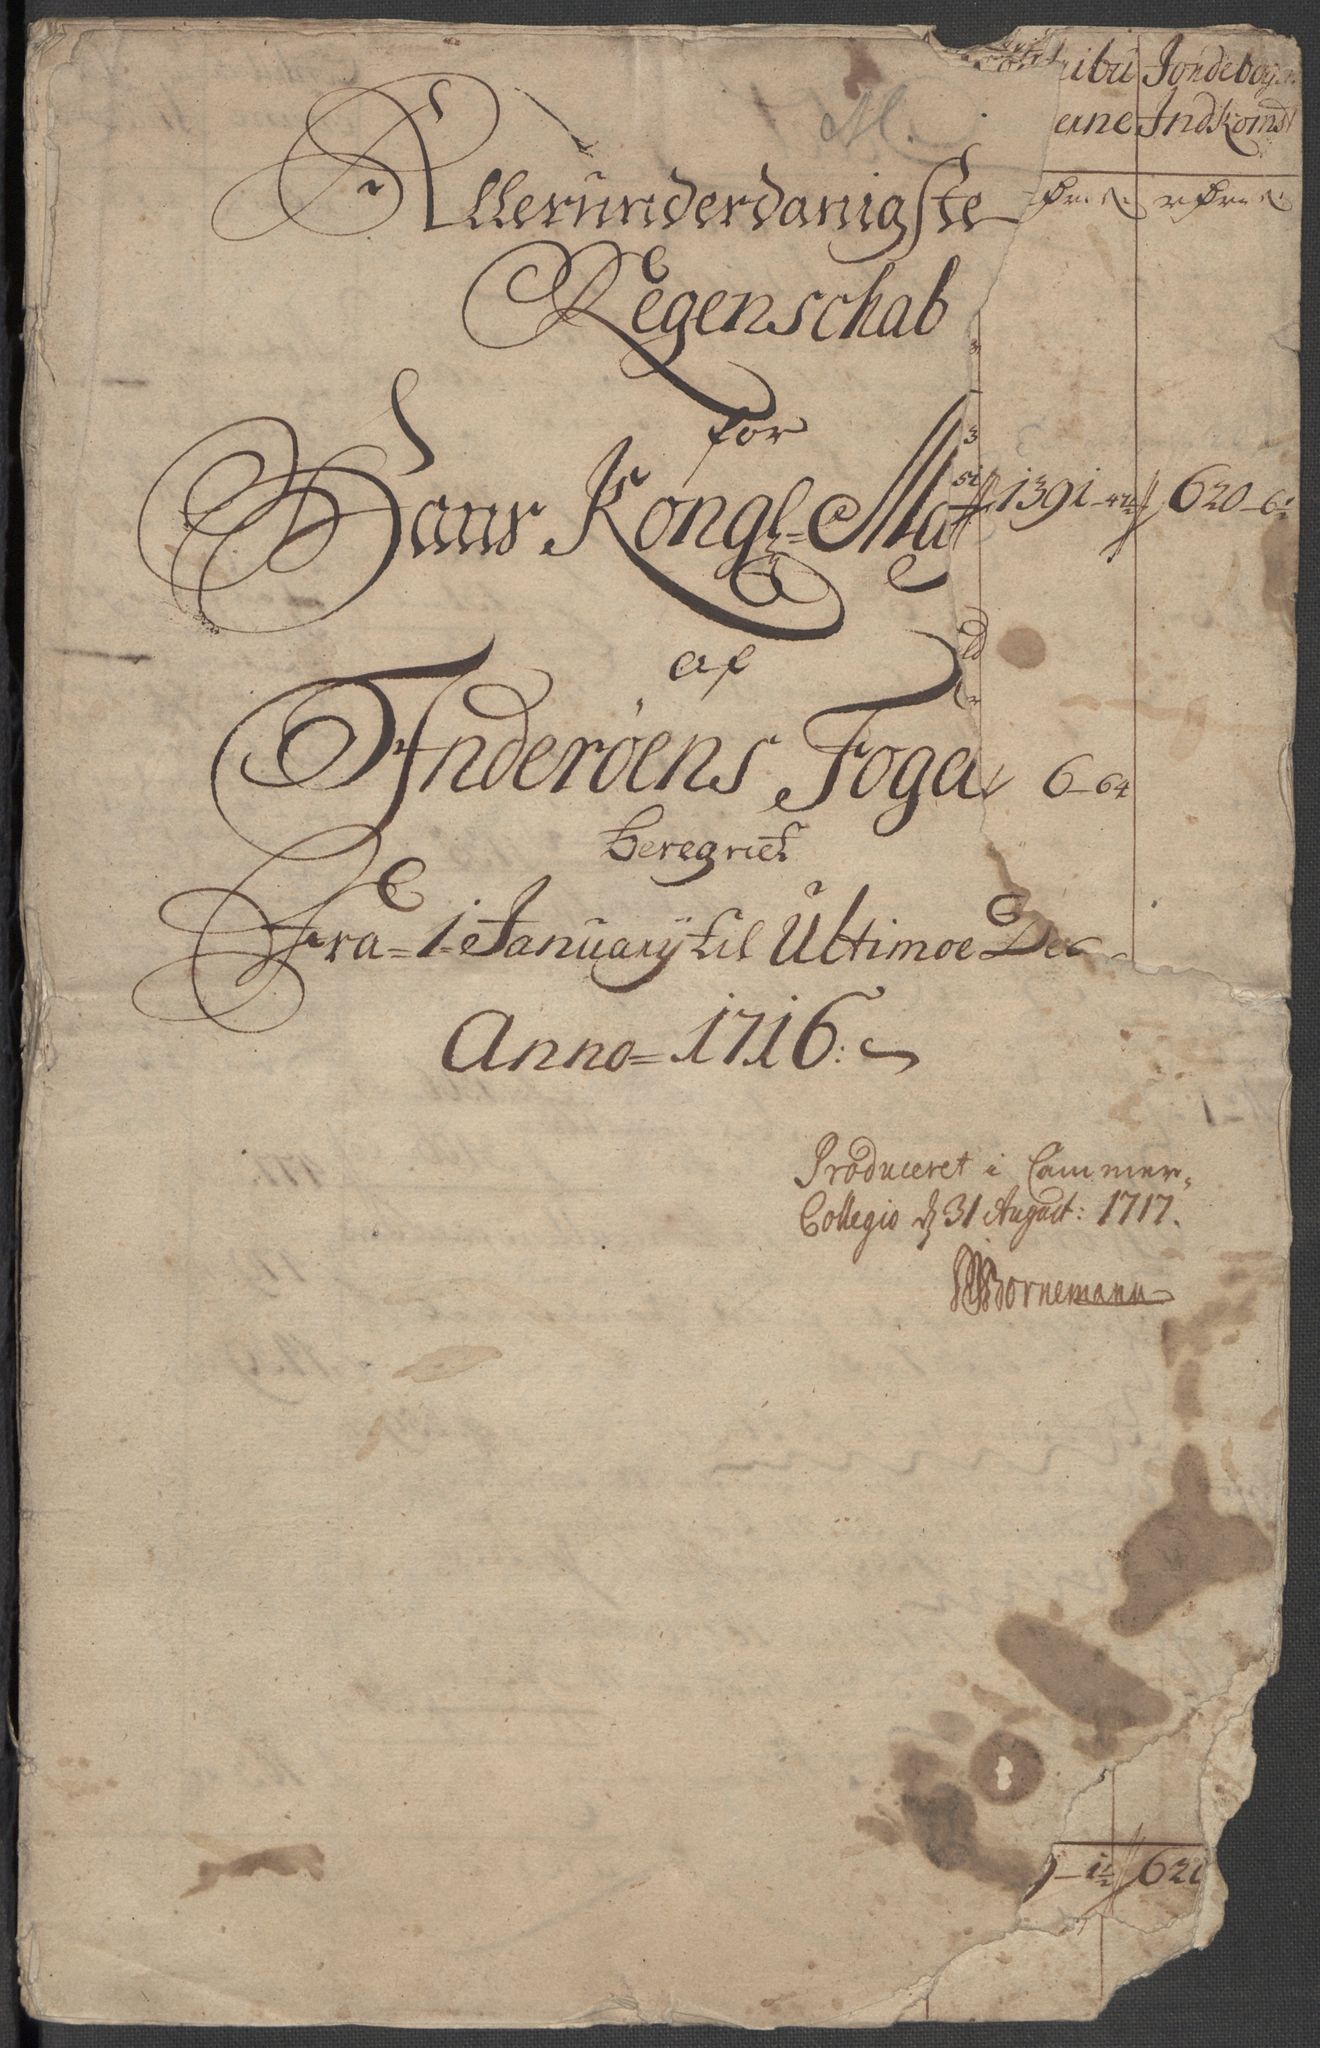 Allerunderdanigste
Regenschab
for
Hans Kongl. Ma
af
Inderøens Foga
beregnet
Fra 1 January til Ultimoe Dec
Anno 1716
Produceret i Cammer-
Collegio d 31 August: 1717.
Bornemann
ribu Jordebog
erne Indkomst
1391 620
6-64
621